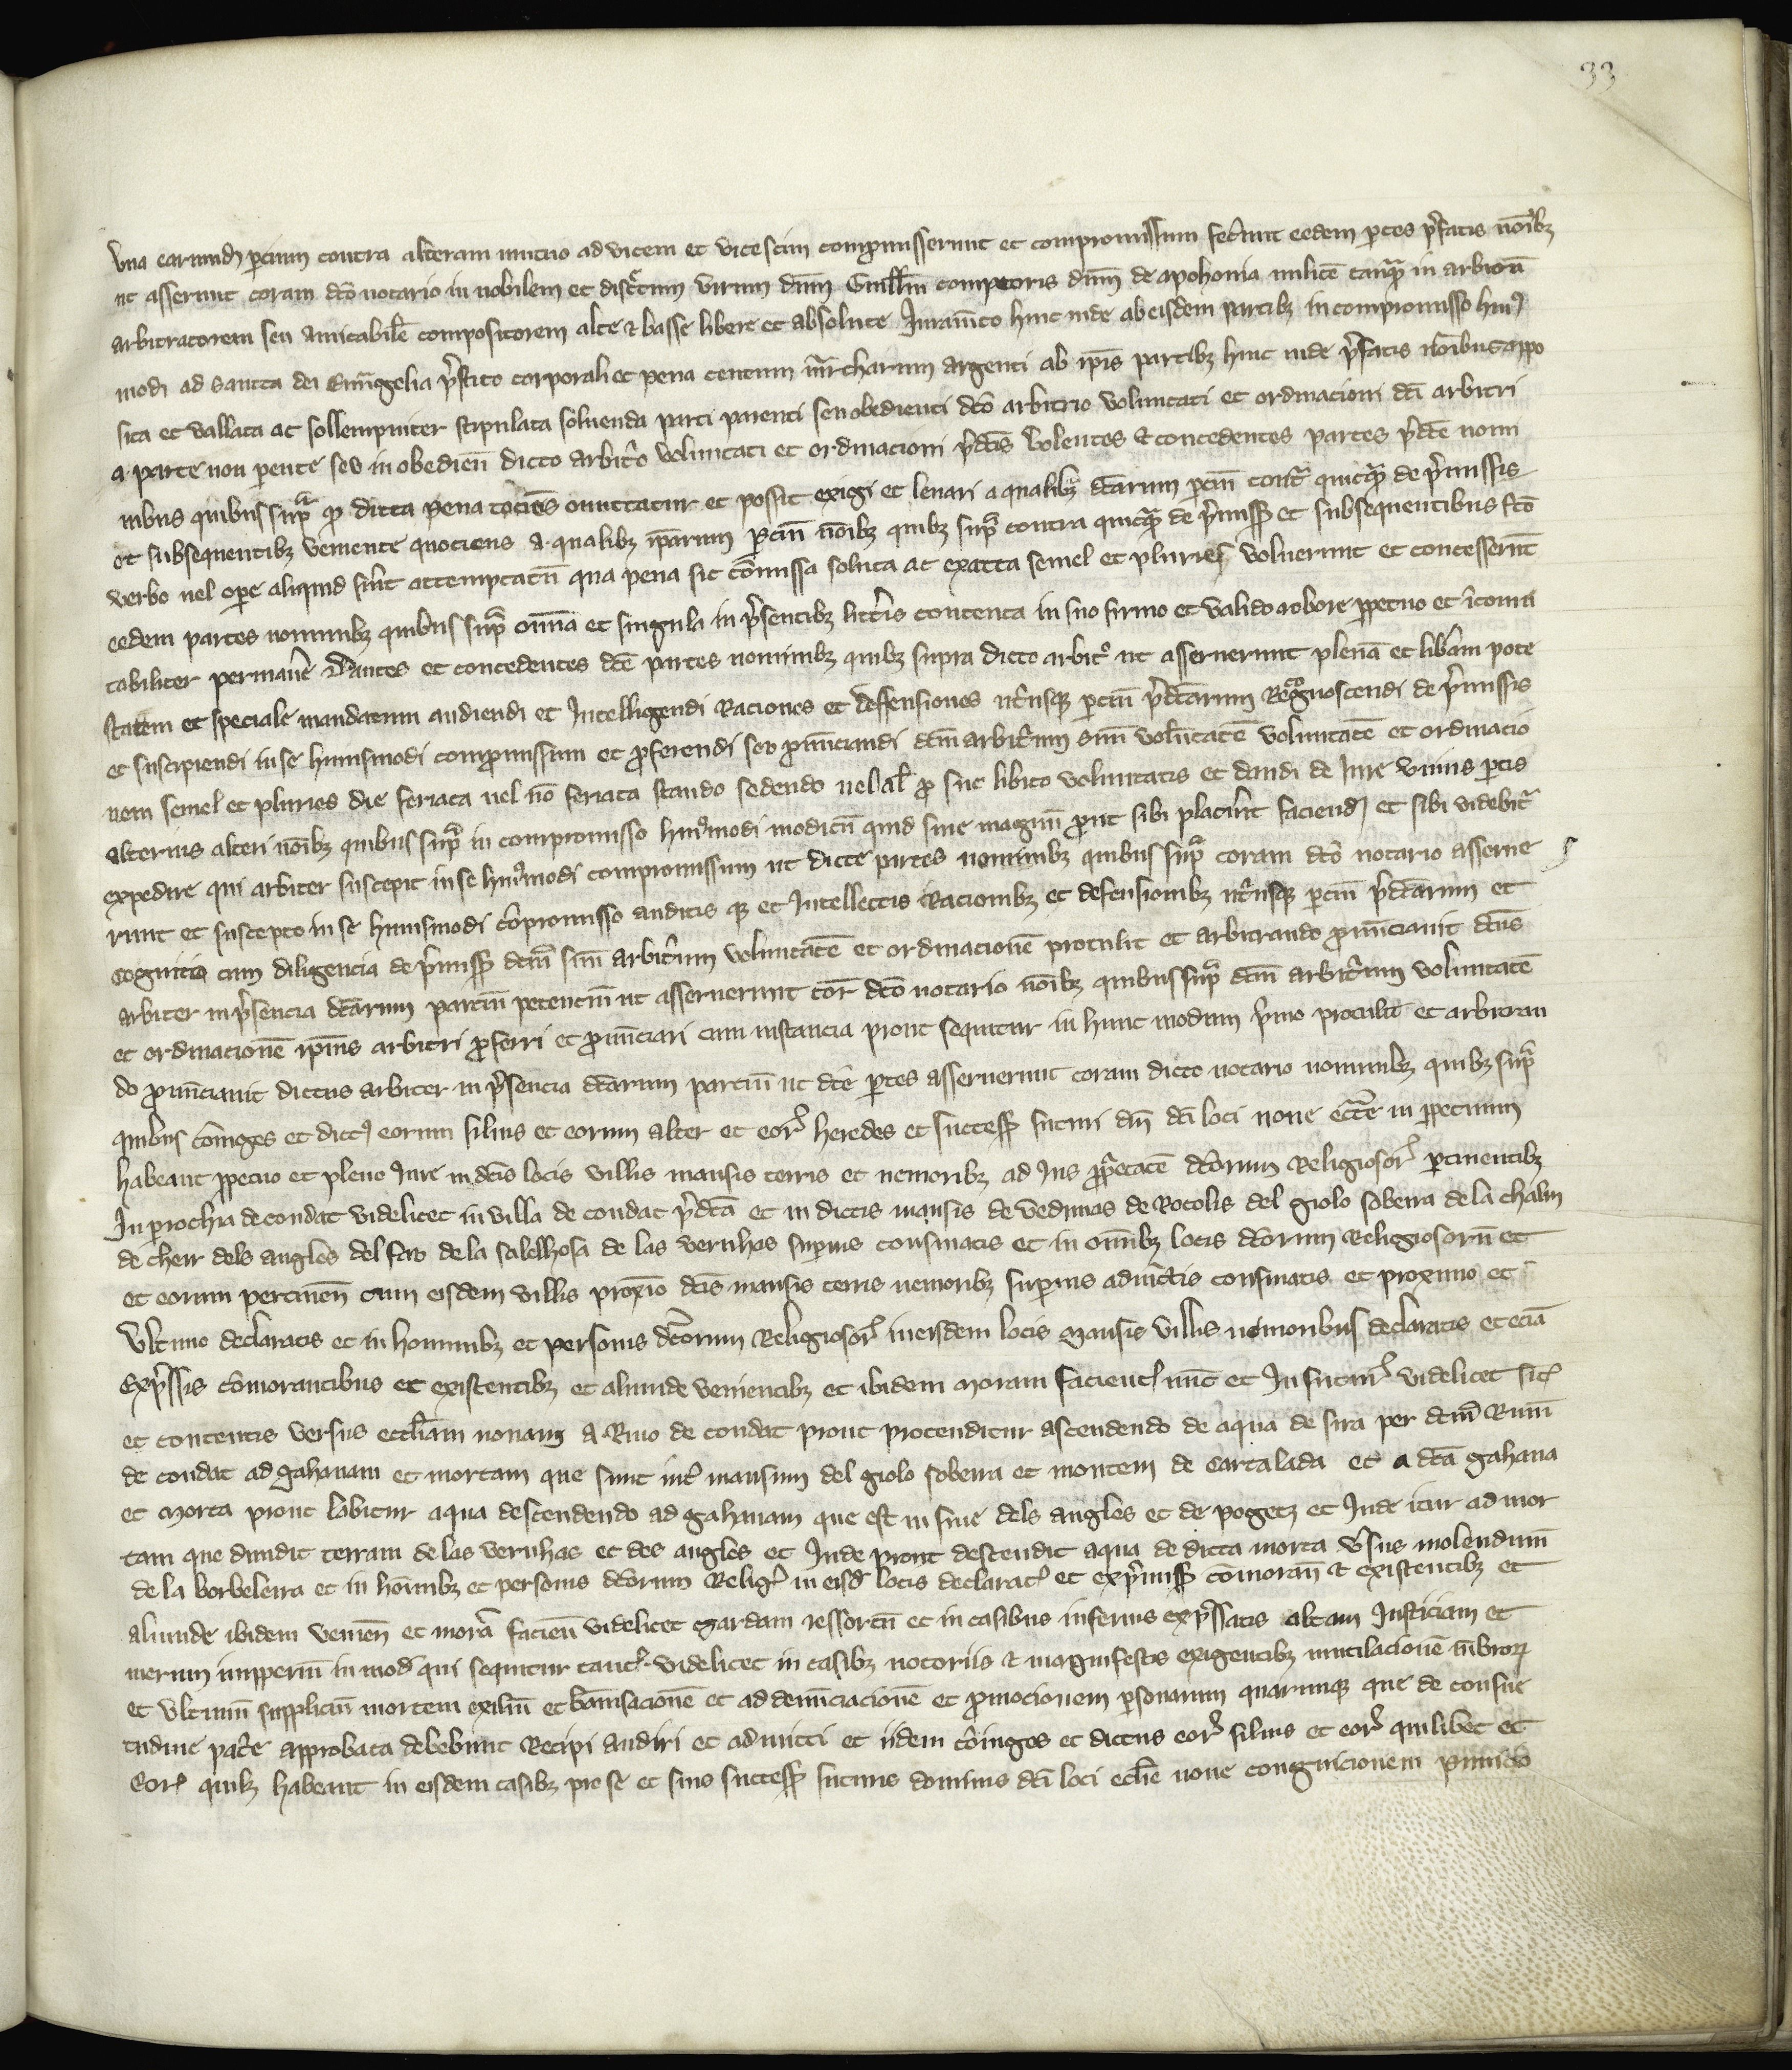 33
vna earumd partium contra alteram mutuo ad vicem et vicescim compromisserunt et compromissum fecerunt eedem partes p̃fatis noĩbȝ
ut asserunt coram dc̃o notario in nobilem et discr̃tum virum dñm Guillm̃ comptoris dñm de apchonia milit̃e tanq̃ in arbitrũ
arbitratorem seu amicabil̃e compositorem alte & basse libere et absolute Iuram̃to hinc inde ab eisdem partibȝ in compromisso huiꝰ
modi ad sancta dei Euũggelia p̃stito corporali et pena centum m̃rcharum argenti ab ip̃is partibȝ hinc inde p̃fatis noĩbus appo
sita et vallata ac sollempniter stipulata soluenda parti parenti seu obedienti dc̃o arbitrio voluntati et ordinacioni dc̃i arbitri
a parte non pente seu inobedien̄ dicto arbitr̃o voluntati et ordinacioni p̃dc̃is Volentes & concedentes partes p̃dc̃e nomi
nibus quibus supͣ ꝙ dicta pena tociens cõmittatur et possit exigi et leuari a qualibȝ dc̃arum parciũ contͣ quicqͣ de p̃missis
et subsequentibȝ veniente quociens a qualibȝ ip̃arum parciũ noĩbȝ quibȝ supͣ contra quicqͣ de p̃miss̃ et subsequentibus fc̃o
verbo uel ope aliquid fũit attemptatũ qua pena sic cõmissa soluta ac exacta semel et pluries voluerunt et concesserũt
eedem partes nominibȝ quibus supͣ om̃ia et singula in p̃sentibȝ litt̃is contenta in suo firmo et valido robore ꝑpetuo et ĩcomu
tabiliter permaner̃e Dantes et concedentes dc̃e partes nominibȝ quibȝ supra dicto arbitr̃o ut asseruerunt plenã et libãm pote
statem et speciale mandatum audiendi et Intelligendi Raciones et deffensiones utr̃usqȝ parciũ p̃dc̃arum Recognoscendi de p̃missis
et suscipiendi in se huiusmodi compromissum et proferendi seu pronũciandi dc̃m arbitr̃um suũ volũtatẽ voluntatẽ et ordinacio
nem semel et pluries die feriata uel nõ feriata stando sedendo uel al̃ pro sue libito voluntatis et dandi de Iure vnius partis
alterius alteri noĩbȝ quibus supͣ in compromisso huiꝰmodi modicũ quid siue magnũ prout sibi placũit faciend et sibi videbit̃
expedire qui arbiter suscepit in se huiꝰmodi compromissum ut dicte partes nominibȝ quibus supͣ coram dc̃o notario asserue
runt et suscepto in se huiusmodi cõpromisso auditis qȝ et Intellectis Racionibȝ et defensionibȝ utr̃usqȝ parciũ p̃dc̃arum et
cognitio cum diligencia de p̃miss̃ dc̃m suũ arbitr̃um voluntatẽ et ordinacionẽ protulit et arbitrando pronũciauit dc̃us
arbiter in p̃sencia dc̃arum parciũ petenciũ ut asseruerunt cor̃ dc̃o notario noĩbȝ quibus supͣ dc̃m arbitr̃um voluntatẽ
et ordinacionẽ ip̃ius arbitri proferri et pronũciari cum instancia prout sequitur in hunc modum p̃mo protulit et arbitran
do pronũciauit dictus arbiter in p̃sencia dc̃arum parciũ ut dc̃e partes asseruerunt coram dicto notario nominibȝ quibȝ supͣ
quibus cõinges et dictꝰ eorum filius et eorum alter et eor̃ heredes et success̃ futuri dñi dc̃i loci noue ecc̃e in ꝑpetuum
habeant ꝑpetuo et pleno Iure in dc̃is locis villis mansis terris et nemoribȝ ad Ius ꝓprietatẽ dc̃orum Religiosor̃ partinentibȝ
In parochia de condat videlicet in villa de condat p̃dc̃a et in dictis mansis de vedrinas de Rocolis del giolo sobeira de la chalm
de cheir dels angles del fau de la salelhosa de las vernhas superius confinatis et in omĩbȝ locis dc̃orum Religiosorũ et
et eorum pertinen̄ cum eisdem villis proxĩo dc̃is mansis terris nemoribȝ superius adiũctis confinatis et proximo et
vltimo declaratis et in hominibȝ et personis dc̃orum Religiosor̃ in eisdem locis mansis villis nemoribus declaratis et eciã
exp̃ssis cõmorantibus et existentibȝ et aliunde venientibȝ et ibidem moram facient nũc et In futur̃ videlicet sit
et contentis versus eccl̃iam nonam a Riuo de condat prout protenditur ascendendo de aqua de sira per dc̃m Riuũ
de condat ad gahanam et mortam que sunt int̃ mansum del giolo sobeira et montem de cartalada et a dc̃a gahana
et morta prout labitur aqua descendendo ad gahanam que est in fine dels angles et de pogetȝ et Inde itur ad mor
tam que diuidit terram de las vernhas et des angles et Inde prout descendit aqua de dicta morta ṽsus molendinũ
de la borbeleira et in hoĩnibȝ et personis dc̃orum Relig̃ in eisd locis declarat et exp̃miss̃ cõmoran̄ & existentibȝ et
aliunde ibidem venien̄ et morã facien̄ videlicet gardam ressortũ et in casibus inferius exp̃ssatis altam Iusticiam et
merum imperiũ in mod qui sequitur tant̃ videlicet in casibȝ notoriis & magnifestis exigentibȝ mutilacionẽ m̃brorꝫ
et vltimũ suppliciũ mortem exiliũ et bãnisacionẽ et ad denũciacionẽ et promocionem personarum quarumqȝ que de consue
tudine pat̃e approbata debebunt Recipi audiri et admitti et iidem cõinges et dictus eor̃ filius et eor̃ quilibet et
Eor̃ quibȝ habeant in eisdem casibȝ pro se et suis success̃ futuris dominis dc̃i loci ecl̃ie noue congnicionem punicio